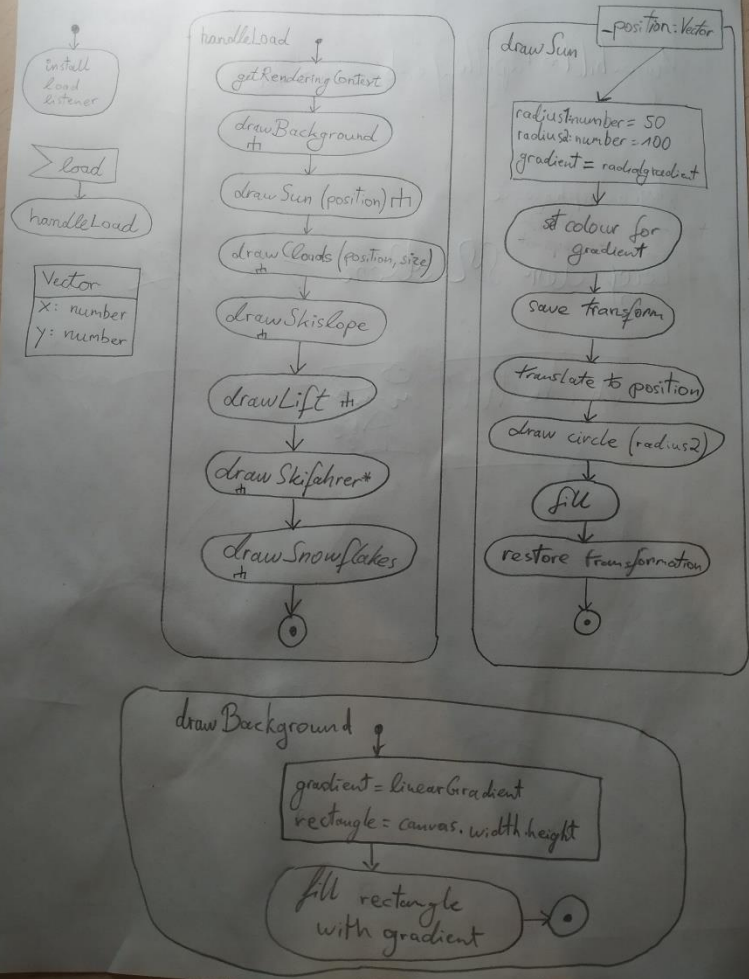 install
load
listener
load
handleLoad
Vector
x: number
y: number
handleLoad
getRenderingContext
drawBackground
drawSun (position)
drawClouds (position, size)
drawSkislope
drawLift
drawSkifahrer*
drawSnowflakes
_position: Vector
drawSun
radius1:number = 50
radius2:number = 100
gradient = radialgradient
set colour for
gradient
save transform
translate to position
draw circle (radius2)
fill
restore transformation
drawBackground
gradient = linearGradient
rectangle = canvas.width.height
fill rectangle
with gradient